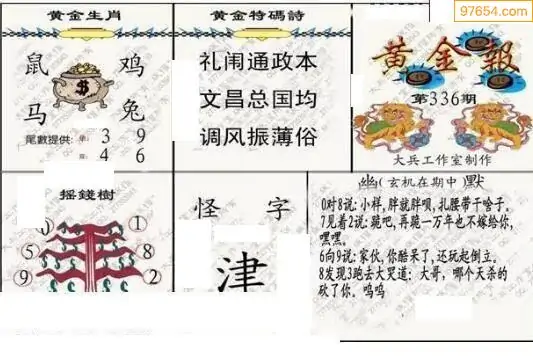 97654.com
黄金生肖
鼠 鸡
$
马 兔
尾數提供: 單: 3 9
双: 4 6
黄金特碼詩
礼闹通政本
文昌总国均
调风振薄俗
黄金報
第336期
大兵工作室制作
摇錢樹
0 1
5 8
9 2
怪 字
津
幽(玄机在期中)默
0对8说:小样,胖就胖呗,扎腰带干啥子。
7见着2说:跪吧,再跪一万年也不嫁给你,
嘿嘿。
6向9说:家伙,你酷呆了,还玩起倒立。
8发现3跑去大哭道:大哥,哪个天杀的
砍了你。呜呜